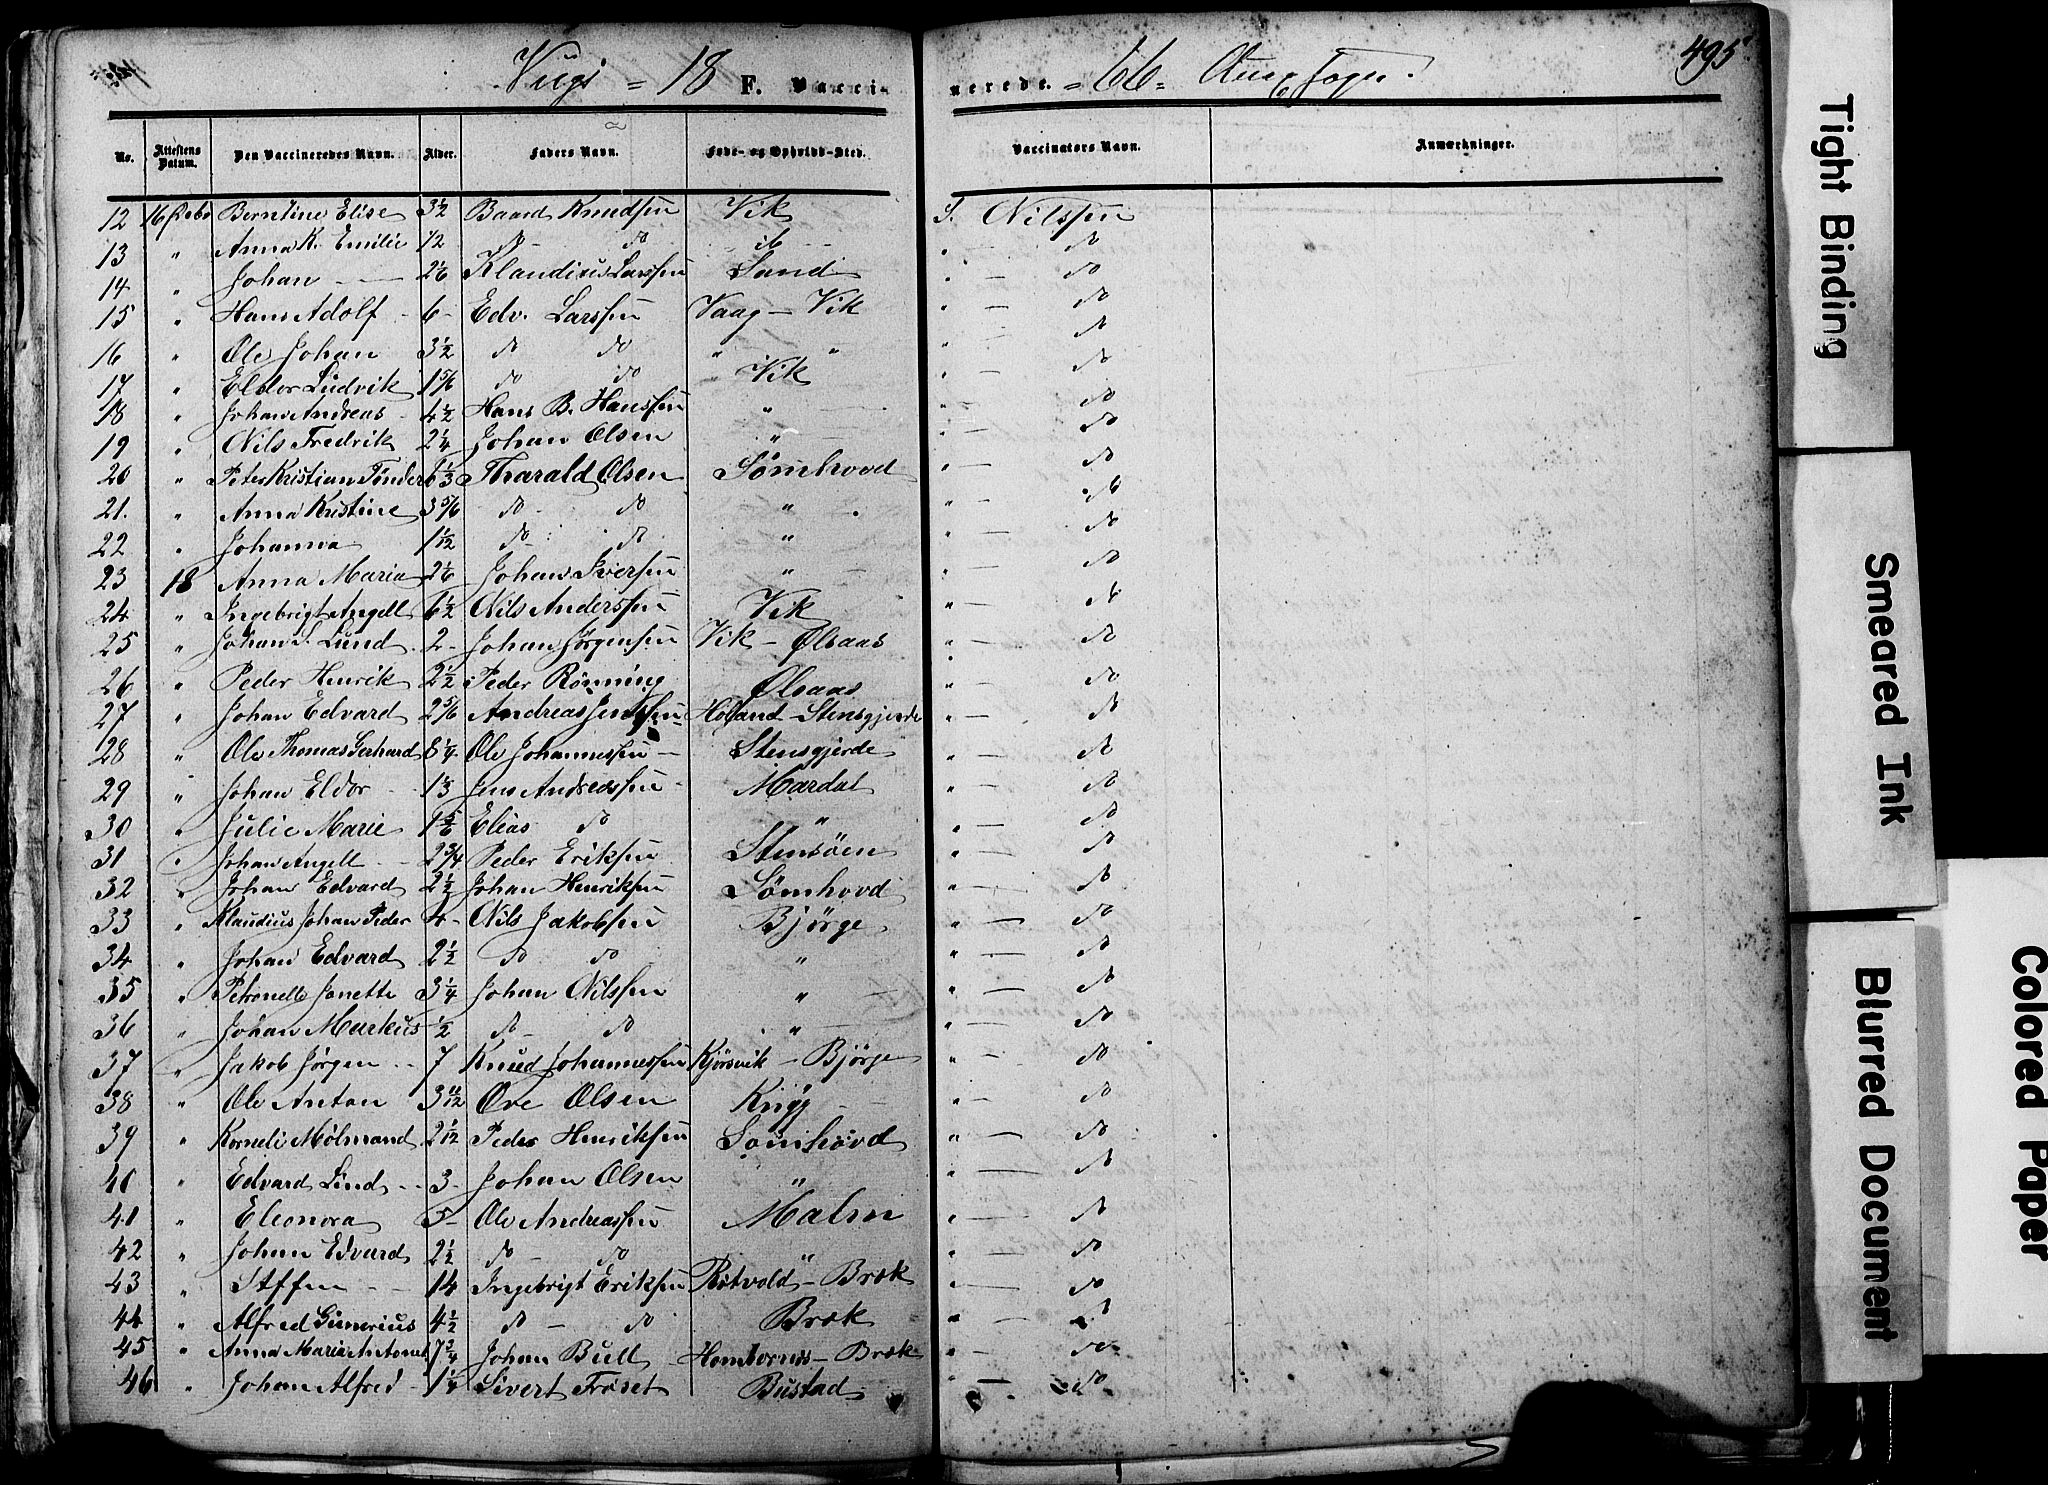 18 F. Vacci- nerede. 66 495
No. Attestens Datum. Den Vaccineredes Navn. Alder. Faders Navn. Føde- og Opholds-Sted. Vaccinators Navn. Anmærkninger.
12 16 Berntine Elise 3½ Baard Knudsen Vik Nilssen
13 " Anna K. Emilie ½ do do ib " do
14 " Johan 2⅙ Klaudius Larssen Sand " do
15 " Hans Adolf 6 Edv. Larssen Vaag - Vik " do
16 " Ole Johan 3½ do do " " " do
17 " Eldor Ludvik 1⅚ do do Vik " do
18 " Johan Andreas 4½ Hans B. Hanssen " " do
19 " Nils Fredrik 2¼ Johan Olsen " " do
20 " Peter Kristian Tønder 6⅓ Tharald Olsen Sømhovd " do
21. " Anna Kristine 3⅚ do do " " do
22 " Johanna 1 1/12 do do " " do
23 18 Anna Maria 2⅙ Johan Iversen " " do
24 " Ingebrigt Angell 6½ Nils Anderssen Vik " do
25 " Johan S. Lund 2 Johan Jørgensen Vik - Ølsaas " do
26 " Peder Henrik 2½ Peder Rønning Ølsaas " do
27 " Johan Edvard 2⅚ Andreas Jenssen Holand - Stensgjerde " do
28 " Ole Thomas Gerhard 8¼ Ole Johannessen Stensgjerde " do
29 " Johan Eldor 13 Jens Andreassen Mardal " do
30 " Julie Marie 1⅚ Elias do " " do
31 " Johan Angell 2¾ Peder Eriksen Stensöen " do
32 " Johan Edvard 2½ Johan Henriksen Sømhovd " do
33 " Klaudius Johan Peder 4 Nils Jakobsen Bjørge " do
34 " Johan Edvard 2½ do do " " do
35 " Petronelle Janette 3¼ Johan Nilssen " " do
36 " Johan Markus ½ do do " " do
37 " Jakob Jørgen 7 Knud Johannessen Kjørsvik - Bjørge " do
38 " Ole Anton 3 11/12 Ove Olsen " do
39 " Korneli Mølmand 2 1/12 Peder Henriksen Sømhovd " do
40 " Edvard Lind 3 Johan Olsen " " do
41 " Eleonora 5 Ole Andreassen Malm " do
42 " Johan Edvard 2½ do do " " do
43 " Steffen 14 Ingebrigt Eriksen Røtvold - Bræk " do
44 " Alfred Gunerius 4½ do do Bræk " do
45 " Anna Maria Antonet 7¾ Johan Bull Hombornes - Bræk " do
46 " Johan Alfred 1¼ Sivert Frøset Bustad " do
Tight Binding
Smeared Ink
Blurred Document
Colored Paper